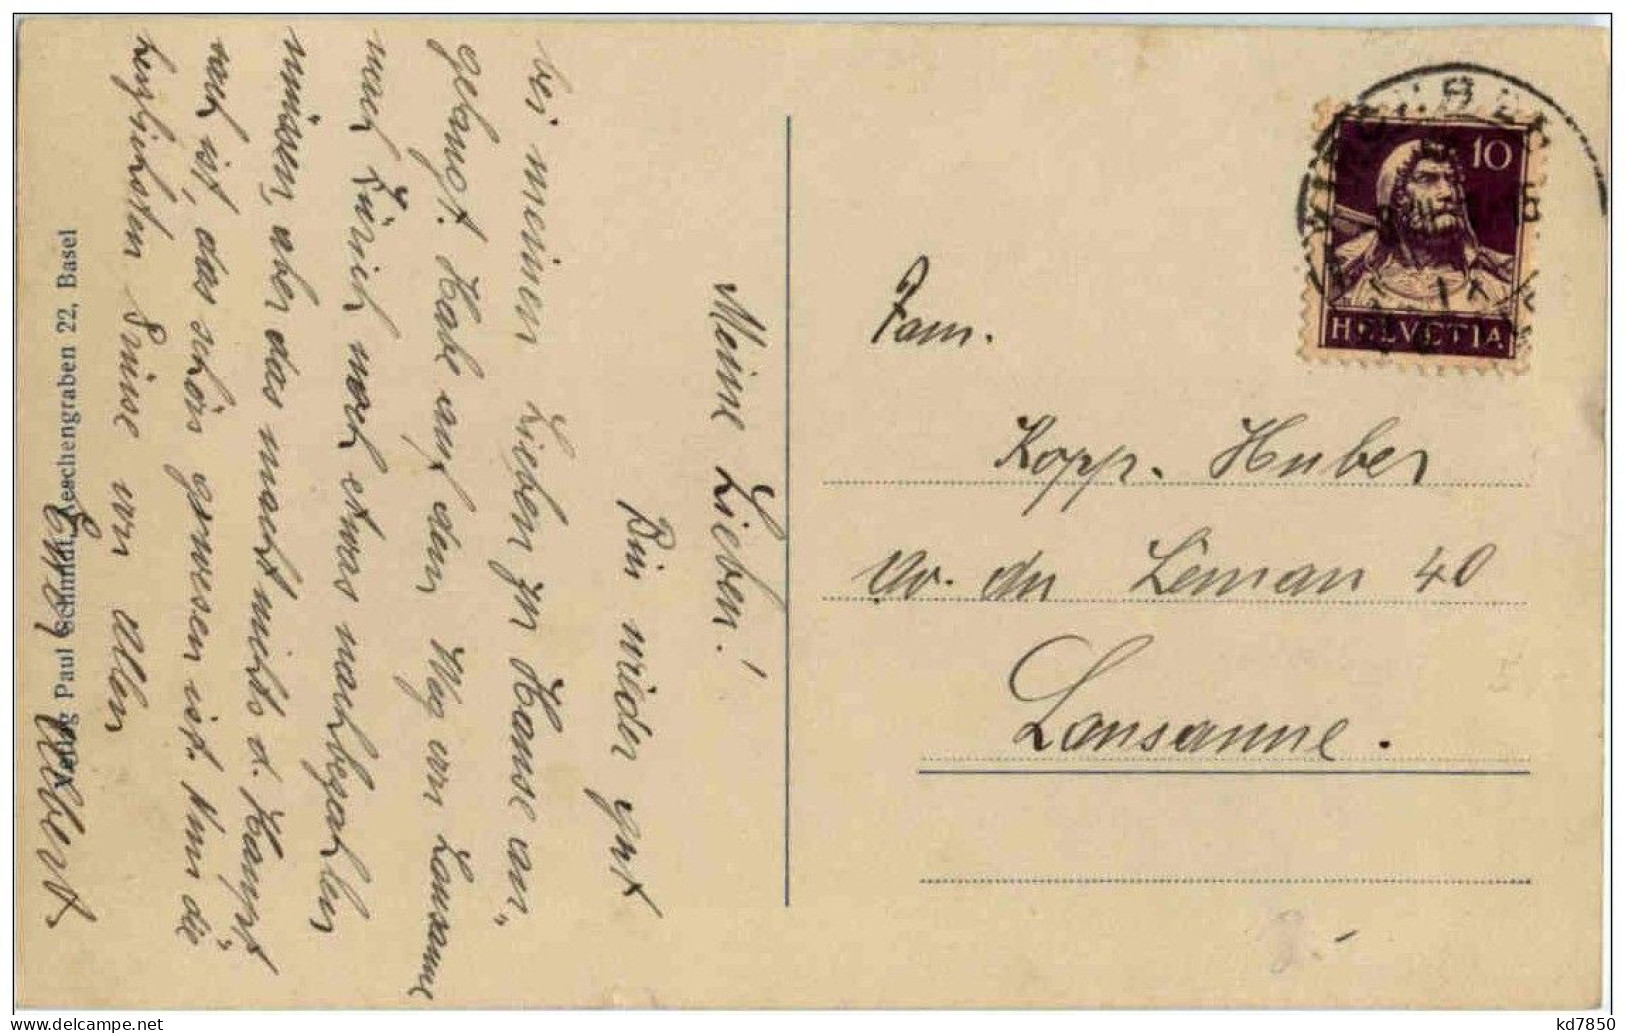 Meine Lieben!
Bin wieder gut
bei meinen Lieben zu Hause an„
gelangt. Habe auf dem Weg von Lausanne
nach Zürich noch etwas nachbezahlen
müssen, aber das macht nichts d. Haupt„
sach ist, das schön gewesen ist. Nun die
herzlichsten Grüsse von Allen
Euer Albert.
Verlag Paul Schmidt, Aeschengraben 22, Basel
10
HELVETIA
Fam.
Kopp-Huber
Av. du Léman 40
Lausanne.
kd7850